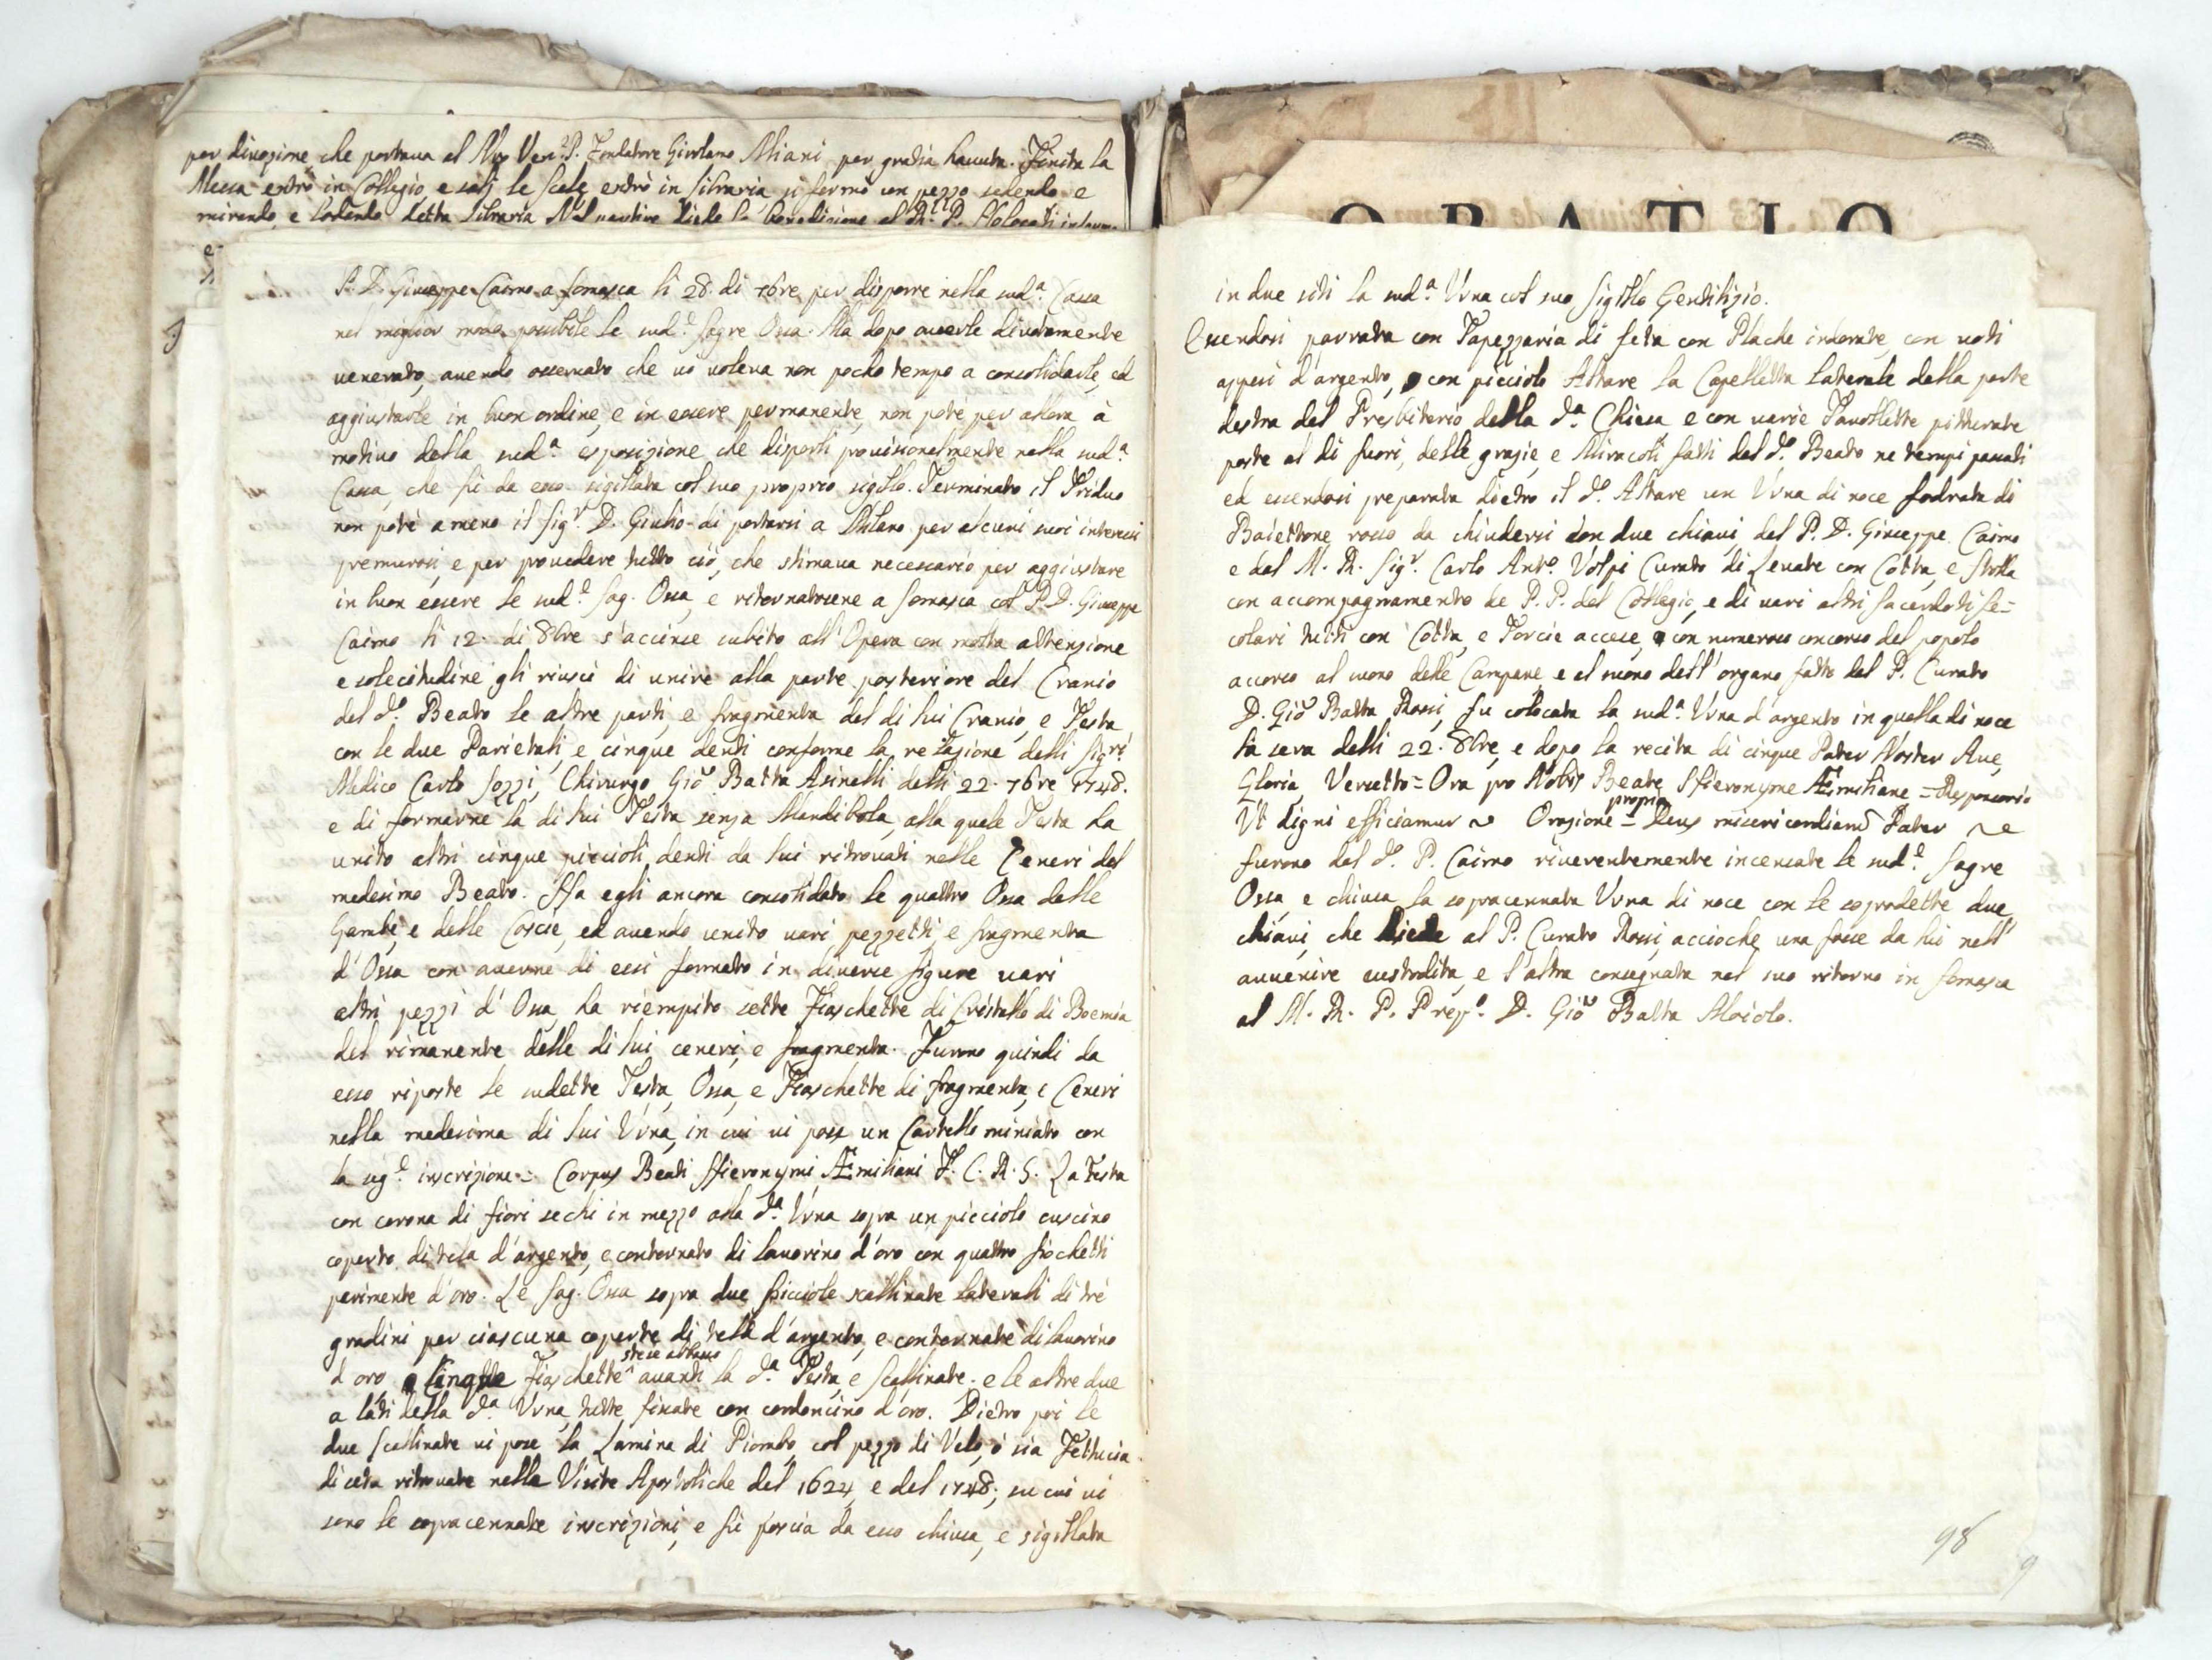 per divozione che portava al Nro Ven. P. Fondatore Girolamo Miani per gratia havuta. Finita la
Messa entrò in Collegio, e salì le scale entrò in libraria si fermò un pezzo sedendo e
mirando, e lodando detta libraria. Nel partire diede la benedizione al
P. D. Giuseppe Caimo a Somasca li 28. di 7bre per disporre nella sudª. Cassa
nel miglior modo possibile le sudᵉ. Sagre Ossa. Ma dopo averle divotamente
venerato, avendo osservato che vi voleva non poco tempo a consolidarle, ed
aggiustarle in buon ordine, e in essere permanente, non potè per allora à
motivo della sudª. esposizione che disporli provisionalmente nella sudª.
Cassa, che fù da esso sigillata col suo proprio sigillo. Terminato il Triduo
non potè a meno il Sigʳ. D. Giulio di portarsi a Milano per alcuni suoi interessi
premurosi, e per provedere tutto ciò, che stimava necessario per aggiustare
in buon essere le sudᵉ. Sag. Ossa, e ritornatosene a Somasca col P. D. Giuseppe
Caimo li 12. di 8bre s'accinse subito all'Opera con molta attenzione
e solecitudine gli riuscì di unire alla parte posteriore del Cranio
del dº. Beato le altre parti, e fragmenta del di lui Cranio, e Testa
con le due Parietali, e cinque denti conforme la relazione delli Sigʳⁱ
Medico Carlo Sozzi, Chirurgo Giò Batta Asinelli delli 22. 7bre 1748.
e di formarne la di lui Testa senza Mandibola, alla quale Testa ha
unito altri cinque piccioli denti da lui ritrovati nelle Ceneri del
medesimo Beato. Ha egli ancora consolidato le quattro Ossa delle
Gambe, e delle Coscie, ed avendo unito vari pezzetti, e fragmenta
d'Ossa con averne di essi formato in diverse figure vari
altri pezzi d'Ossa, ha riempito sette Fiaschette di Cristallo di Boemia
del rimanente delle di lui ceneri, e fragmenta. Furono quindi da
esso riposte le sudette Testa, Ossa, e Fiaschette di fragmenta, e Ceneri
nella medesima di lui Urna, in cui vi pose un Cartello miniato con
la segᵉ. inscrizione = Corpus Beati Hieronymi Æmiliani F. C. R. S. La Testa
con corona di fiori sechi in mezzo alla dª. Urna sopra un picciolo cuscino
coperto di tela d'argento, e contornato di lavorino d'oro con quattro fiochetti
parimente d'oro. Le Sag. Ossa sopra due picciole scallinate laterali di trè
gradini per ciascuna coperte di tella d'argento, e contornate di lavorino
stese abbasso
d'oro Cinque Fiaschette avanti la dª. Testa, e Scallinate. e le altre due
a lati della dª. Urna, tutte fissate con cordoncino d'oro. Dietro poi le
due Scallinate vi pose la Lamina di Piombo, col pezzo di Velo, ò sia Fettucia
di seta ritrovate nelle Visite Apostoliche del 1624, e del 1748; su cui vi
sono le sopracennate inscrizioni, e fù poscia da esso chiusa, e sigillata
ORATIO
in due siti la sudª. Urna col suo Sigillo Gentilizio.
Essendosi parrata con Tapezzaria di seta con Plache indorate, con voti
appesi d'argento, con picciolo Altare la Capelletta laterale della parte
destra del Presbiterio della dª. Chiesa e con varie Tavollette pitturate
poste al di fuori, delle grazie, e Miracoli fatti dal dº. Beato ne tempi passati
ed essendosi preparata dietro il dº. Altare un Urna di noce fodrata di
Baiettone rosso da chiudersi con due chiavi, dal P. D. Giuseppe Caimo
e dal M. R. Sigʳ. Carlo Antº. Volpi Curato di Levate con Cotta, e Stolla
con accompagnamento de P. P. del Collegio, e di vari altri Sacerdoti Se=
colari tutti con Cotta, e Torcie accese, con numeroso concorso del popolo
accorso al suono delle Campane e al suono dell'organo fatto dal P. Curato
D. Giò Batta Rossi, fu colocata la sudª. Urna d'argento in quella di noce
la sera delli 22. 8bre, e dopo la recita di cinque Pater Noster Ave,
Gloria, Versetto = Ora pro Nobis Beate Hieronyme Æmiliane = Responsorio
propria
Ut digni efficiamur ~ Orazione = Deus misericordiarum Pater ~ e
furono dal dº. P. Caimo riverentemente incensate le sudᵉ. Sagre
Ossa, e chiusa la sopracennata Urna di noce con le sopradette due
chiavi, che diede al P. Curato Rossi, accioche una fosse da lui nell'
avvenire custodita, e l'altra consegnata nel suo ritorno in Somasca
al M. R. P. Prepº. D. Giò Batta
98
9